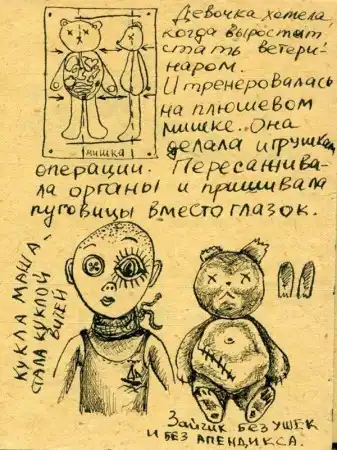 Девочка хотела,
когда выростит
стать ветери-
наром.
И тренеровалась
на плюшевом
мишке. Она
делала игрушкам
операции. Пересажива-
ла органы и пришивала
пуговицы вместо глазок.
мишка
КУКЛА МАША,
СТАЛА КУКЛОЙ
ВУДЕЙ
Зайчик без ушек
и без апендикса.